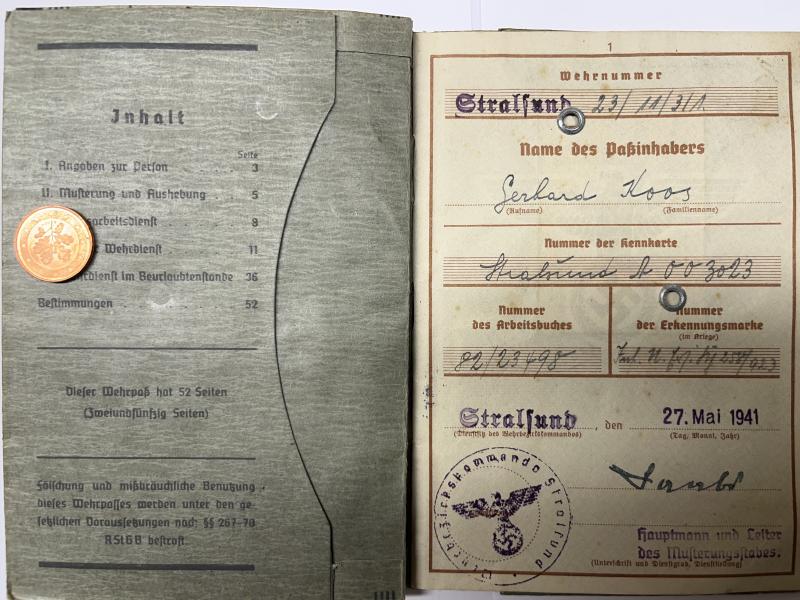 Inhalt
Seite
I. Angaben zur Person 3
II. Musterung und Aushebung . 5
sarbeitsdienst . 8
r Wehrdienst . 11
rdienst im Beurlaubtenstande 36
Bestimmungen . 52
Dieser Wehrpaß hat 52 Seiten
(Zweiundfünfzig Seiten)
Fälschung und mißbräuchliche Benutzung
dieses Wehrpasses werden unter den ge-
setzlichen Voraussetzungen nach §§ 267-70
RStGB bestraft.
1
Wehrnummer
Stralsund 23/11/3/1.
Name des Paßinhabers
Gerhard Koos
(Rufname) (Familienname)
Nummer der Kennkarte
Stralsund A 003023
Nummer
des Arbeitsbuches
82/23498
Nummer
der Erkennungsmarke
(im Kriege)
Stralsund, den 27. Mai 1941
(Dienstsitz des Wehrbezirkskommandos) (Tag, Monat, Jahr)
Wehrbezirkskommando Stralsund
Hauptmann und Leiter
des Musterungsstabes.
(Unterschrift und Dienstgrad, Dienststellung)